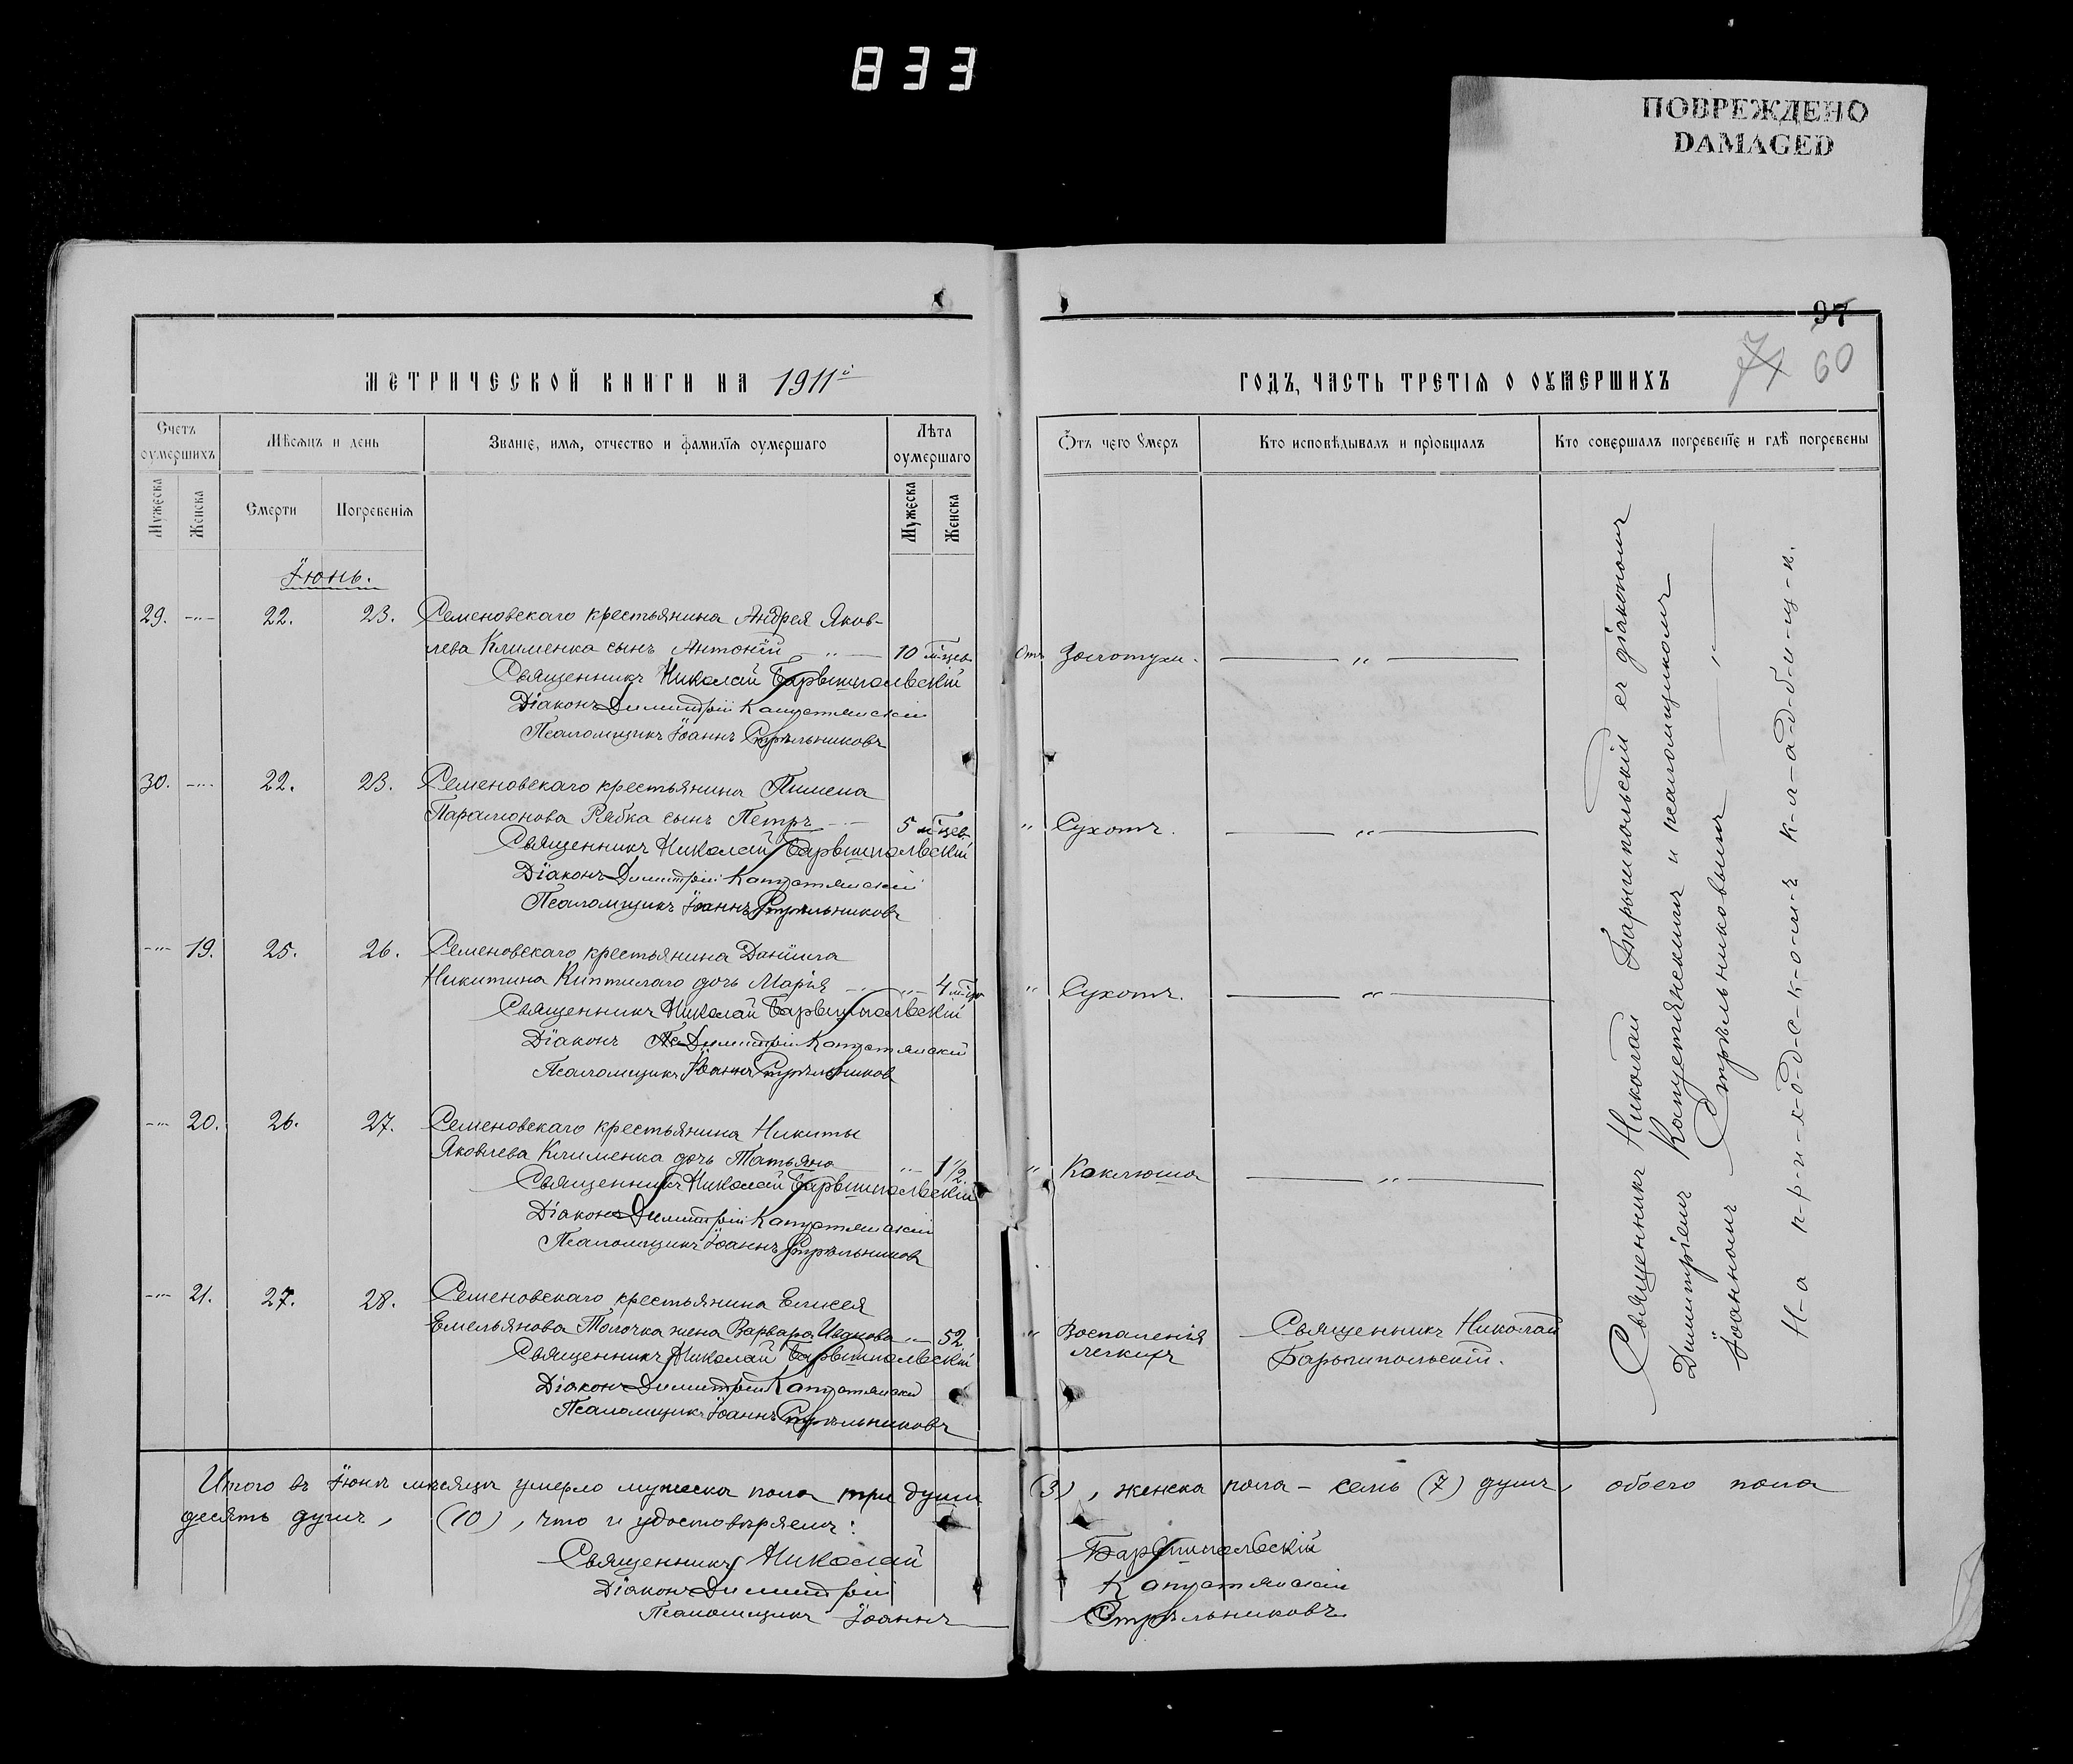 833
ПОВРЕЖДЕНО
DAMAGED
97
71 60
МЕТРИЧЕСКОЙ КНИГИ НА 1911й
ГОДЪ, ЧАСТЬ ТРЕТІѦ О ОУМЕРШИХЪ
Счетъ оумершихъ
Мѣсѧцъ и день
Званіе, имѧ, отчество и фамиліѧ оумершаго
Лѣта оумершаго
Ѿъ чего оумеръ
Кто исповѣдывалъ и пріобщалъ
Кто совершалъ погребеніе и гдѣ погребены
Мужеска
Женска
Смерти
Погребеніѧ
Мужеска
Женска
Іюнь.
29. -"- 22. 23. Семеновскаго крестьянина Андрея Яков-
лева Клименка сынъ Антоній -"- 10 м-цев. Отъ Золотухи. -"-
Священникъ Николай Барышпольскій
Діаконъ Димитрій Капустянскій
Псаломщикъ Іоаннъ Стрѣльниковъ
30. -"- 22. 23. Семеновскаго крестьянина Пимена
Парамонова Рябка сынъ Петръ 5 м-цев. " Сухотъ. -"-
Священникъ Николай Барышпольскій
Діаконъ Димитрій Капустянскій
Псаломщикъ Іоаннъ Стрѣльниковъ
-"- 19. 25. 26. Семеновскаго крестьянина Даніила
Никитина дочь Марія -"- 4 м-ца " Сухотъ. -"-
Священникъ Николай Барышпольскій
Діаконъ Димитрій Капустянскій
Псаломщикъ Іоаннъ Стрѣльников
-"- 20. 26. 27. Семеновскаго крестьянина Никиты
Яковлева Клименка дочь Татьяна -"- 1 1/2 " Коклюша -"-
Священникъ Николай Барышпольскій
Діаконъ Димитрій Капустянскій
Псаломщикъ Іоаннъ Стрѣльников
-"- 21. 27. 28. Семеновскаго крестьянина Елисея
Емельянова Толочка жена Варвара Иванова -"- 52. " Воспаленія Священникъ Николай
легкихъ Барышпольскій.
Священникъ Николай Барышпольскій
Діаконъ Димитрій Капустянскій
Псаломщикъ Іоаннъ Стрѣльниковъ
Священникъ Николай Барышпольскій съ діакономъ
Димитріемъ Капустянскимъ и псаломщикомъ
Іоанномъ Стрѣльниковымъ -"-
Н-а п-р-и-х-о-д-с-к-о-м-ъ к-л-а-д-б-и-щ-ѣ.
Итого въ Іюнѣ мѣсяцѣ умерло мужеска пола три души (3), женска пола - семь (7) душъ, обоего пола
десять душъ, (10), что и удостовѣряемъ:
Священникъ Николай Барышпольскій
Діаконъ Димитрій Капустянскій
Псаломщикъ Іоаннъ Стрѣльниковъ